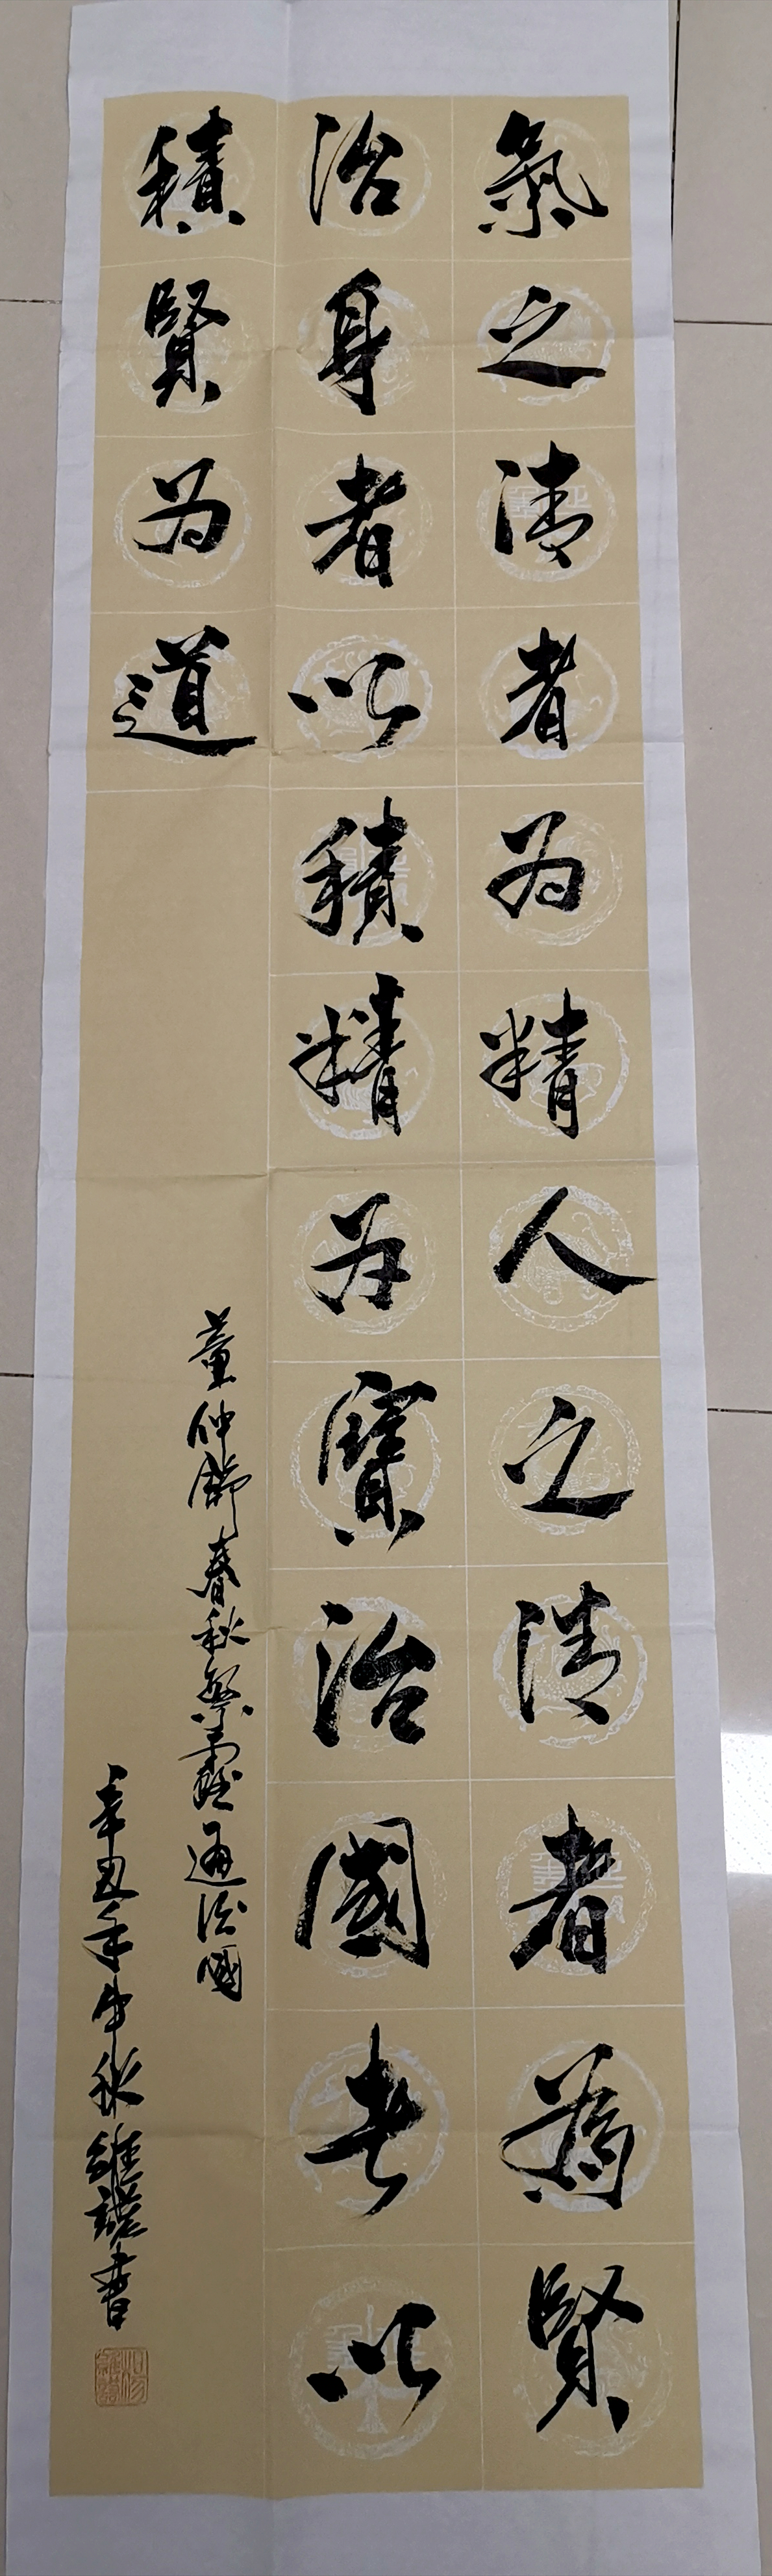 氣之清者为精人之清者為賢
治身者以積精为寶治國者以
積賢为道
董仲舒春秋繁露通法國
辛丑年中秋維謀書